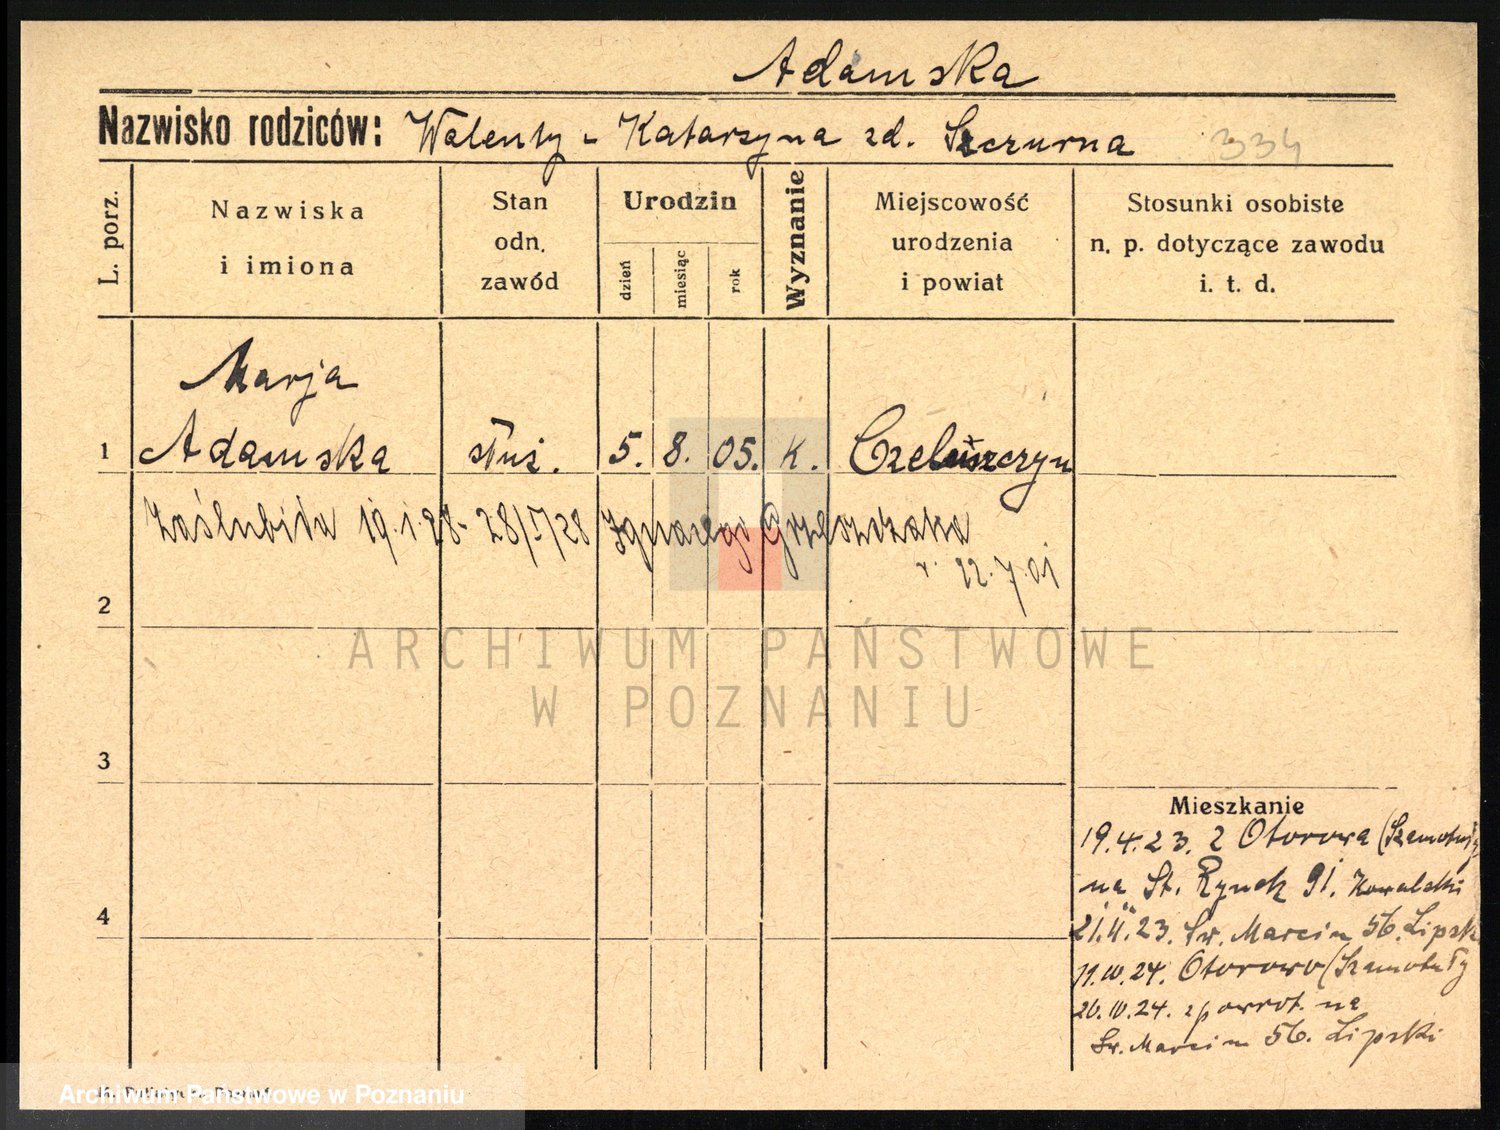 Adamska
Nazwisko rodziców: Walenty - Katarzyna zd. Szczurna 334
L. porz.
Nazwiska
i imiona
Stan
odn.
zawód
Urodzin
dzień
miesiąc
rok
Wyznanie
Miejscowość
urodzenia
i powiat
Stosunki osobiste
n. p. dotyczące zawodu
i. t. d.
Marja
1 Adamska służ. 5. 8. 05. K. Czeluszczyn
Zaślubiła 19.1.28 - 28/I/28 Ignacego Grześczaka
r. 22.7.01
2
ARCHIWUM PAŃSTWOWE
W POZNANIU
3
Mieszkanie
19.4.23. z Otorowa (Szamotuły
na St. Rynek 91. Kowalski
4
21.II.23. Św. Marcin 56. Lipsk
11.IV.24. Otorowo (Szamotuły
26.IV.24. zpowrot. na
Św. Marcin 56. Lipski
Archiwum Państwowe w Poznaniu